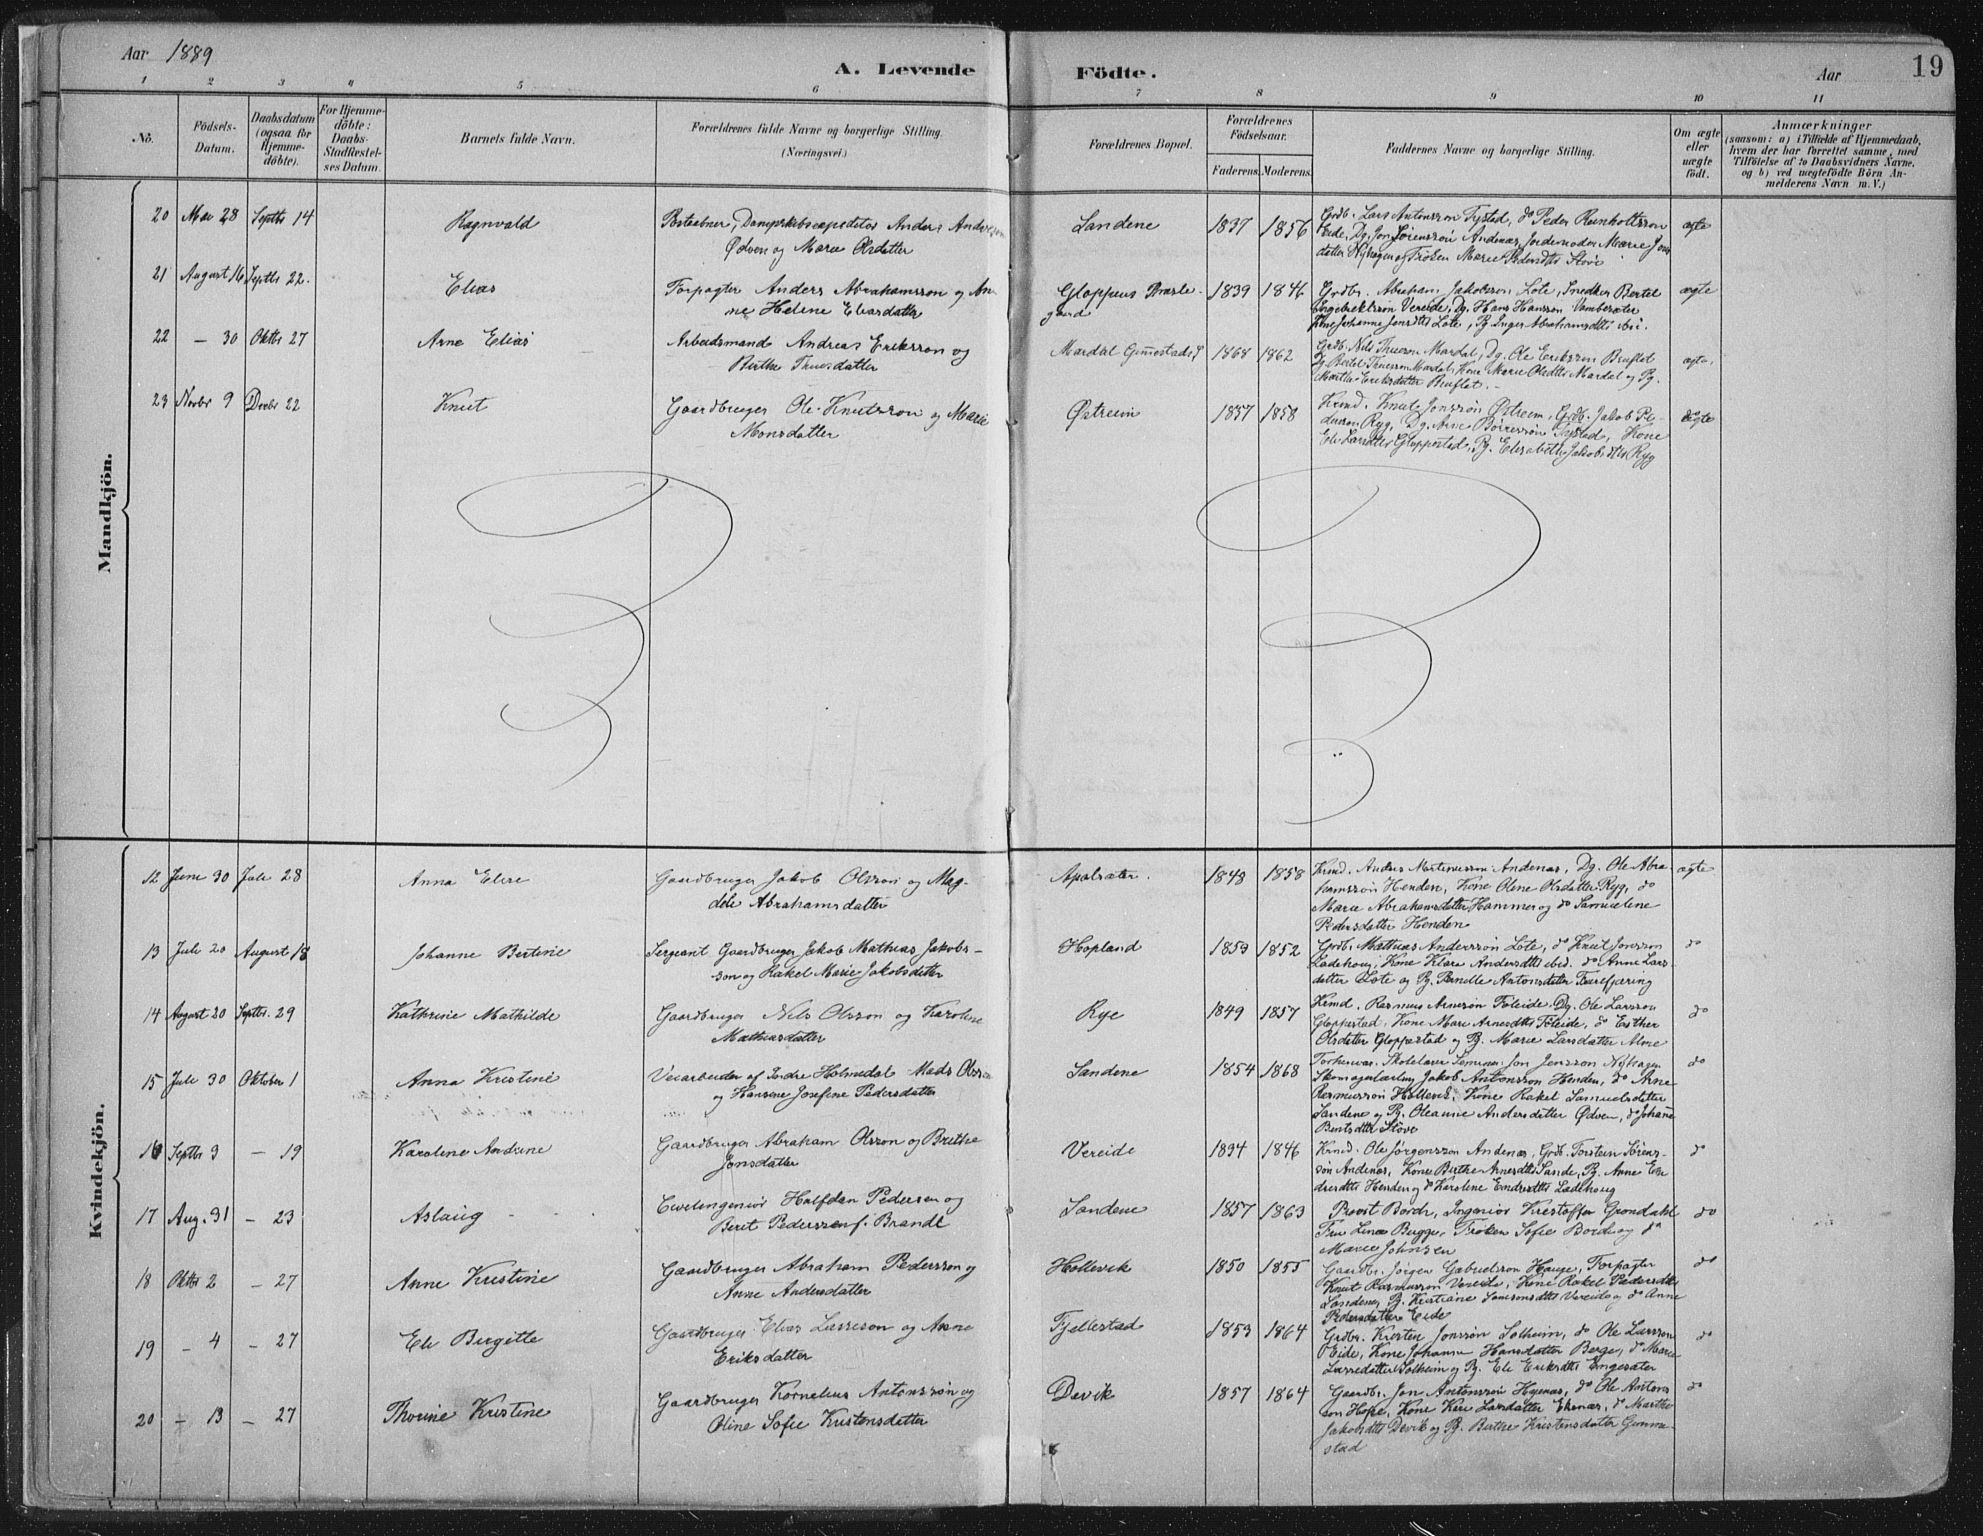 Aar 1889
A. Levende Födte.
Aar
19
1 2 3 4 5 6 7 8 9 10 11
No.
Födsels-Datum.
Daabsdatum (ogsaa for Hjemme-döbte).
For Hjemme-döbte: Daabs-Stadfæstel-ses Datum.
Barnets fulde Navn.
Forældrenes fulde Navne og borgerlige Stilling.
(Næringsvei.)
Forældrenes Bopæl.
Forældrenes Födselsaar.
Faderens. Moderens.
Faddernes Navne og borgerlige Stilling.
Om ægte eller uægte födt.
Anmærkninger
(saasom: a) i Tilfælde af Hjemmedaab,
hvem der har forrettet samme, med
Tilföielse af to Daabsvidners Navne,
og b) ved uægtefödte Börn An-
melderens Navn m. V.)
Mandkjön.
20 28 Septbr 14 Ragnvald
Anders
Ødven og Marie Olsdatter
Sandene 1837 1856
Grdb. Lars Antonssøn Tystad, do Peder
Eide, Dg. Jon Sörenssön Andenæs, Jordemoder Marie Jons
datter Nyhagen og Frøken Marie
ægte
21 August 16 Septbr 22. Elias
Forpagter Anders Abrahamssøn og An
ne Helene Eliasdatter
Gloppens Præste-
gaard
1839 1846
Grdbr. Abraham Jakobssøn Lote, Snedker Bertel
Vereide, Dg. Hans Hanssøn
Kone Johanne Jonsdtr Lote, Pg. Inger Abrahamsdtr ibid.
ægte
22 - 30 Oktbr 27 Arne Elias
Arbeidsmand Andreas Erikssøn og
Birthe Thuesdatter
Mardal 1862
Grdb. Nils Thuessøn Mardal, Dg. Ole Erikssøn
Dg. Bertel Thuessøn Mardal, Kone Marie Olsdtr Mardal og Pg.
Marthe Eriksdatter
ægte
23 Novbr 9 Decbr 22 Knut
Gaardbruger Ole Knutssøn og Marie
Monsdatter
Østreim 1857 1858
Knut Jonssøn Østreim, Grdb. Jakob Pe-
derssøn Ryg, Dg. Arne Tystad, Kone
Eli Larsdatter Gloppestad, Pg. Elisabeth Jakobsdtr Ryg
ægte
Kvindekjön.
12 Juni 30 Juli 28 Anna Elise
Gaardbruger Jakob Olssøn og Mag-
deli Abrahamsdatter
Apalsæter. 1848 1858
Anders Martinussøn Andenæs, Dg. Ole Abra
hamssøn Henden, Kone Oline Olsdatter Ryg, do
Marie Abrahamsdatter Hammer og do Samueline
Pedersdatter Henden
ægte
13 Juli 20 August 18 Johanne Bertine
Sergeant Gaardbruger Jakob Mathias Jakobs-
søn og Rakel Marie Jakobsdatter
Hopland 1853 1852
Grdb. Mathias Anderssøn Lote, do Knut Jonssøn
Ladehoug, Kone Klara Andersdtr ibid. do Anne Lars
datter Lote og Pg. Pernille Antonsdatter
do
14 August 20 Septbr. 29 Kathrine Mathilde
Gaardbruger Nils Olssøn og Karoline
Mathiasdatter
Rye 1849 1857
Rasmus Arnessøn Føleide. Dg. Ole Larssøn
Gloppestad, Kone Mari Arnesdtr Føleide, do Esther
Olsdatter Gloppestad og Pg. Marie Larsdatter
do
15 Juli 30 Oktober 1 Anna Kristine
Holmedal Mads Olssøn
og Hansine Josefine Pedersdatter
Sandene 1854 1868
Jon Jonssøn Nyhagen
Jakob Antonssøn Henden, do Arne
Rasmussøn Hollevik, Kone Rakel Samuelsdatter
Sandene og Pg. Oleanne Andersdatter Ødven, do Johanne
Berntsdtr Støve
do
16 Septbr 3 - 19 Karoline Andrine
Gaardbruger Abraham Olssøn og Brithe
Jonsdatter
Vereide 1834 1846
Ole Jørgenssøn Andenæs, Grdb. Torstein Sörens-
søn Andenæs, Kone Birthe Arnesdtr Sande, Pg. Anne En
dresdtr Henden og do Karoline Endresdtr Ladehoug
do
17 Aug. 31 - 23 Aslaug
Civilingeniør Halfdan Pedersen og
Beret Pederssen f. Brandt
Sandene 1857 1863
Provst Ingeniør Kristoffer Grøndahl
Fru Lina Bugge, Frøken Sofie og do
Marie Johnsen
do
18 Oktbr 2 - 27 Anne Kristine
Gaardbruger Abraham Pederssøn og
Anne Andersdatter
Hollevik 1850 1855
Gaardbr. Jørgen Gabrielssøn Hauge, Forpagter
Knut Rasmussøn Vereide, Kone Rakel Pedersdtr
Sandene, Pg. Kristiane Samsonsdtr Vereide og do Anne
Pedersdatter Eide
do
19 - 4 - 27 Eli Birgitte
Gaardbruger Elias Larssøn og Anne
Eriksdatter
Fjellestad 1853 1864
Grdbr. Kristen Jonssøn Solheim, do Ole Larssøn
Eide, Kone Johanne Hansdatter Berge, do Marie
Larsdatter Solheim og Pg. Eli Eriksdtr Engesæter
do
20 - 13 - 27 Thorine Kristine
Gaardbruger Kornelius Antonssøn og
Oline Sofie Kristensdatter
Devik 1857 1864
Gaardbr. Jon Antonssøn do Ole Antons
søn Hope, Kone Kari Larsdatter do Marthe
Jakobsdtr Devik og Pg. Birthe Kristensdatter Gimme-
stad
do